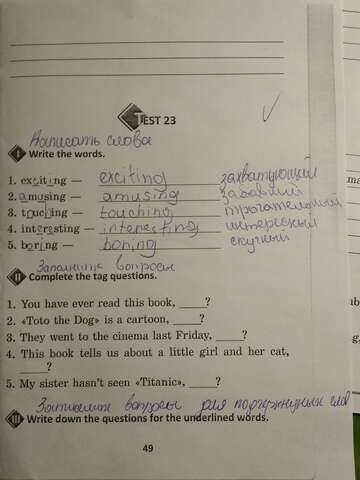 TEST 23
Написать слова
I Write the words.
1. exciting — exciting захватующий
2. amusing — amusing забавний
3. touching — touching трогательний
4. interesting — interesting интересный
5. boring — boring скучный
Запомнить вопросы
II Complete the tag questions.
1. You have ever read this book, ____?
2. «Toto the Dog» is a cartoon, ____?
3. They went to the cinema last Friday, ____?
4. This book tells us about a little girl and her cat,
____?
5. My sister hasn't seen «Titanic», ____?
вопросы для слов
III Write down the questions for the underlined words.
49